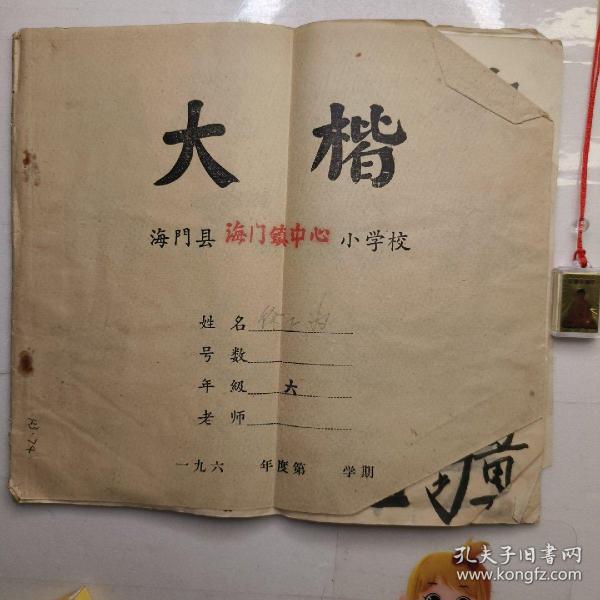 大楷
海門县海门镇中心小学校
姓名
号数
年級 六
老师
一九六 年度第 学期
孔夫子旧书网
www.kongfz.com